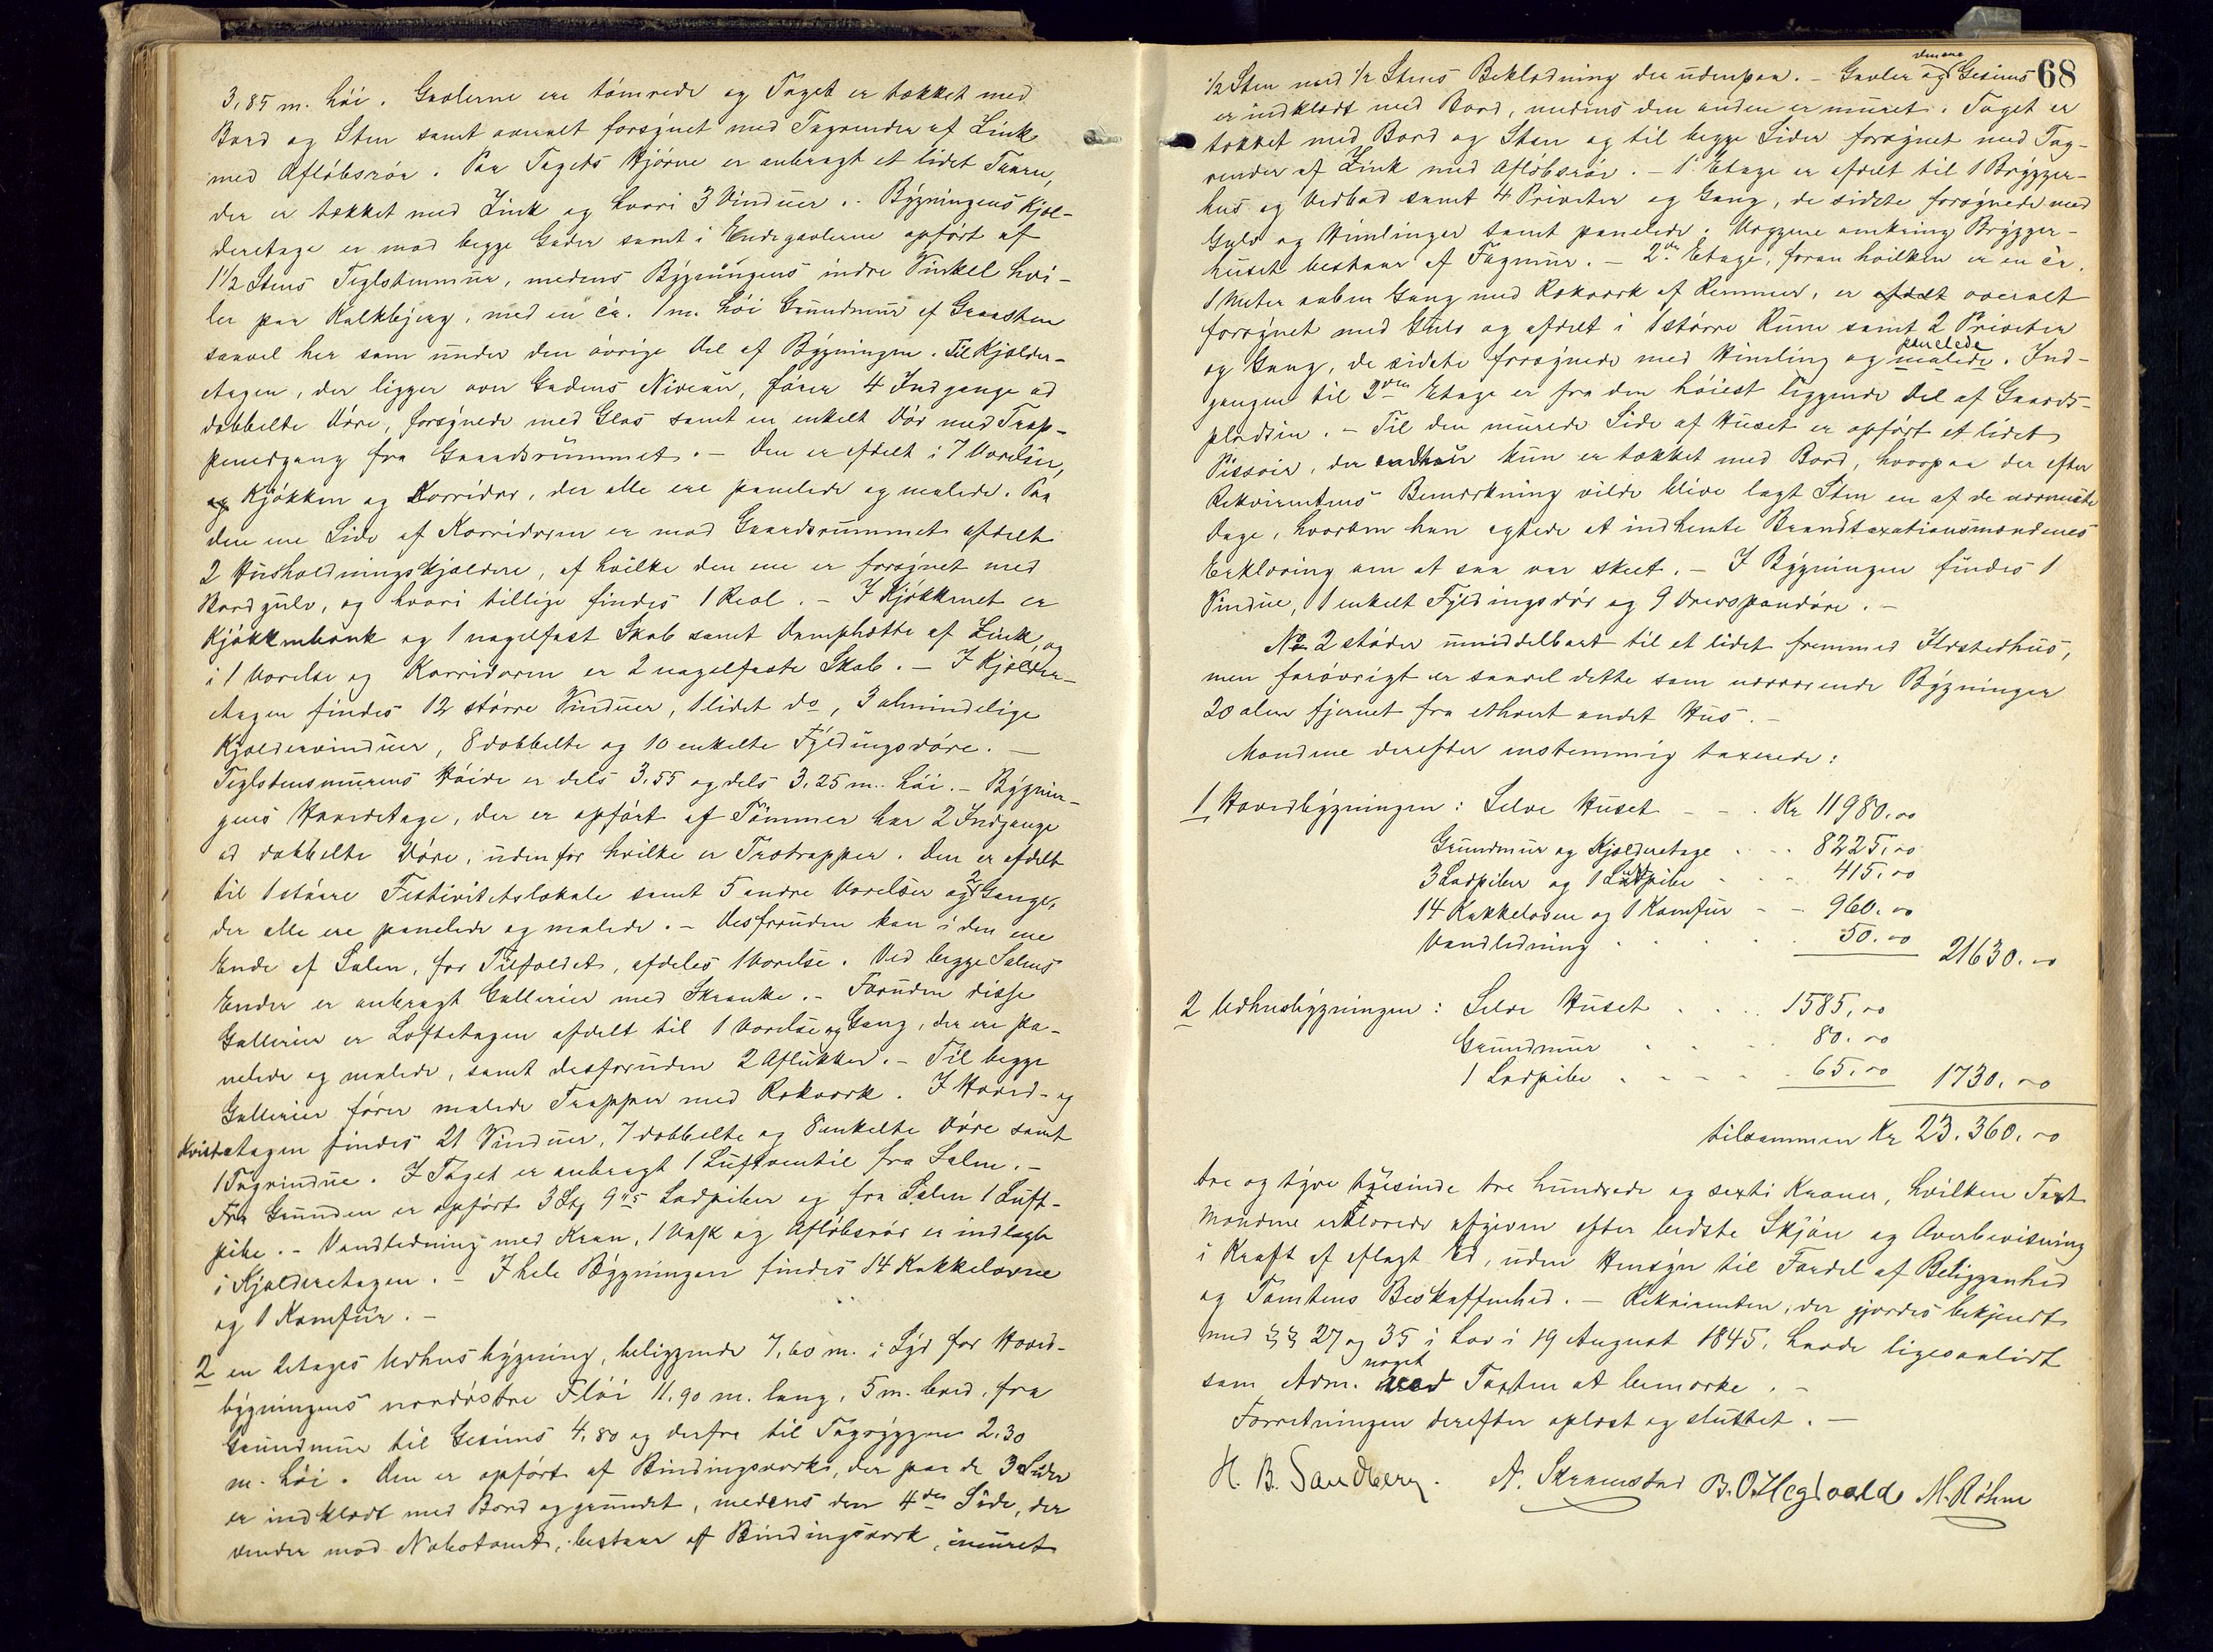 3,85 m. høi. Gavlerne ere tømrede og Taget er tækket med
Bord og Sten samt overalt forsynet med Tagrender af Zink
med Afløbsrør. Paa Tagets Hjørne er anbragt et lidet Taarn,
der er tækket med Zink og hvori 3 Vinduer. - Bygningens Kjæl-
deretage er mod begge Gader samt i Endegavlerne opført af
1½ Stens Teglstenmur, medens Bygningens indre Vinkel hvi-
ler paa Kalkbjerg, med en ca. 1 m. høi Grundmur af Graasten
saavel her som under den øvrige Del af Bygningen. Til Kjælder-
etagen, der ligger over Gadens Niveau, fører 4 Indgange ad
dobbelte Døre, forsynede med Glas samt en enkelt Dør med Trap-
penedgang fra Gaardsrummet. - Den er afdelt i 7 Værelser,
og Kjøkken og Korridor, der alle ere panelede og malede. Paa
den ene Side af Korridoren er mod Gaardsrummet afdelt
2 Husholdningskjældere, af hvilke den ene er forsynet med
Bordgulv, og hvori tillige findes 1 Reol. - I Kjøkkenet er
Kjøkkenbænk og 1 nagelfast Skab samt Damphætte af Zink, og
i 1 Værelse og Korridoren er 2 nagelfaste Skab. - I Kjælder-
etagen findes 12 større Vinduer, 1 lidet do, 3 almindelige
Kjældervinduer, 8 dobbelte og 10 enkelte Fyldingsdøre. -
Teglstensmurens Høide er dels 3,55 og dels 3,25 m. høi. - Bygnin-
gens Hovedetage, der er opført af Tømmer har 2 Indgange
ad dobbelte Døre, udenfor hvilke er Trætrapper. Den er afdelt
til 1 større Festivitetslokale samt 5 andre Værelser og 2 Gange,
der alle ere panelede og malede. - Desforuden kan i den ene
Ende af Salen, for Tilfældet, afdeles 1 Værelse. Ved begge Salens
Ender er anbragt Gallerier med Skranke. - Foruden disse
Gallerier er Loftetagen afdelt til 1 Værelse og Gang, der ere pa-
nelede og malede, samt desforuden 2 Aflukker. - Til begge
Gallerier fører malede Trapper med Rækværk. I Hoved- og
Kvistetagen findes 21 Vinduer, 7 dobbelte og 8 enkelte Døre samt
1 Tagvindue. I Taget er anbragt 1 Luftventil fra Salen. -
Fra Grunden er opført 3 Stk 9" Ladpiber og fra Salen 1 Luft-
pibe. - Vandledning med Kran, 1 Vask og Afløbsrør er indlagt
i Kjælderetagen. - I hele Bygningen findes 14 Kakkelovne
og 1 Komfur. -
2 en 2etages Udhusbygning, beliggende 7,60 m. i Syd for Hoved-
bygningens nordøstre Fløi 11,90 m. lang, 5 m. bred, fra
Grundmur til Gesims 4,80 og derfra til Tagryggen 2,30
m. høi. Den er opført af Bindingsværk, der paa de 3 Sider
er indklædt med Bord og grundet, medens den 4de Side, der
vender mod Nabotomt, bestaar af Bindingsværk, imuret
68
½ Sten med ½ Stens Beklædning der udenpaa. - Gavler og den ene Gesims
er indklædt med Bord, medens den anden er muret. Taget er
tækket med Bord og Sten og til begge Sider forsynet med Tag-
render af Zink med Afløbsrør. - 1 Etage er afdelt til 1 Brygger-
hus og Vedbod samt 4 Priveter og Gang, de sidste forsynede med
Gulv og Himlinger samt panelede. Væggene omkring Brygger-
huset bestaar af Fagmur. - 2den Etage, foran hvilken er en ca.
1 Meter aaben Gang med Rækværk af Remmer, er afdelt overalt
forsynet med Gulv og afdelt i 1 større Rum samt 2 Priveter
og Gang, de sidste forsynede med Himling og malede panelede. Ind-
gangen til 2den Etage er fra den høiest liggende Del af Gaards-
pladsen. - Til den murede Side af Huset er opført et lidet
Pissoir, der endnu kun er tækket med Bord, hvorpaa der efter
Rekvirentens Bemærkning vilde blive lagt Sten en af de nærmeste
Dage, hvorom han agtede at indhente Brandtaxationsmændenes
Erklæring om at saa var skeet. - I Bygningen findes 1
Vindue, 1 enkelt Fyldingsdør og 9 Drevspandøre. -
No 2 støder umiddelbart til et lidet fremmed Ildstedhus,
men forøvrigt er saavel dette som nærværende Bygninger
20 alen fjernet fra ethvert andet Hus. -
Mændene derefter enstemmig taxerede:
1 Hovedbygningen: Selve Huset - - . Kr 11980.00
Grundmur og Kjælderetage . . . 8225.00
3 Ladpiber og 1 Luftpibe - - . 415.00
14 Kakkelovne og 1 Komfur - - 960.00
Vandledning . . . . . 50.00 21630.00
2 Udhusbygningen: Selve Huset . . . 1585.00
Grundmur . . . 80.00
1 Ladpibe . - - - . 65.00 1730.00
tilsammen Kr 23.360.00
tre og tyve tusinde tre hundrede og sexti Kroner, hvilken Taxt
Mændene erklærede afgiven efter bedste Skjøn og Overbevisning
i Kraft af aflagt Ed, uden Hensyn til Fordel af Beliggenhed
og Tomtens Beskaffenhed. - Rekvirenten, der gjordes bekjendt
med §§ 27 og 35 i Lov i 19 August 1845, havde ligesaalidt
som Adm. noget ved Taxten at bemærke. -
Forretningen derefter oplæst og sluttet. -
H. B. Sandberg. A. Skramstad B. O. Hegvold M. Røhne